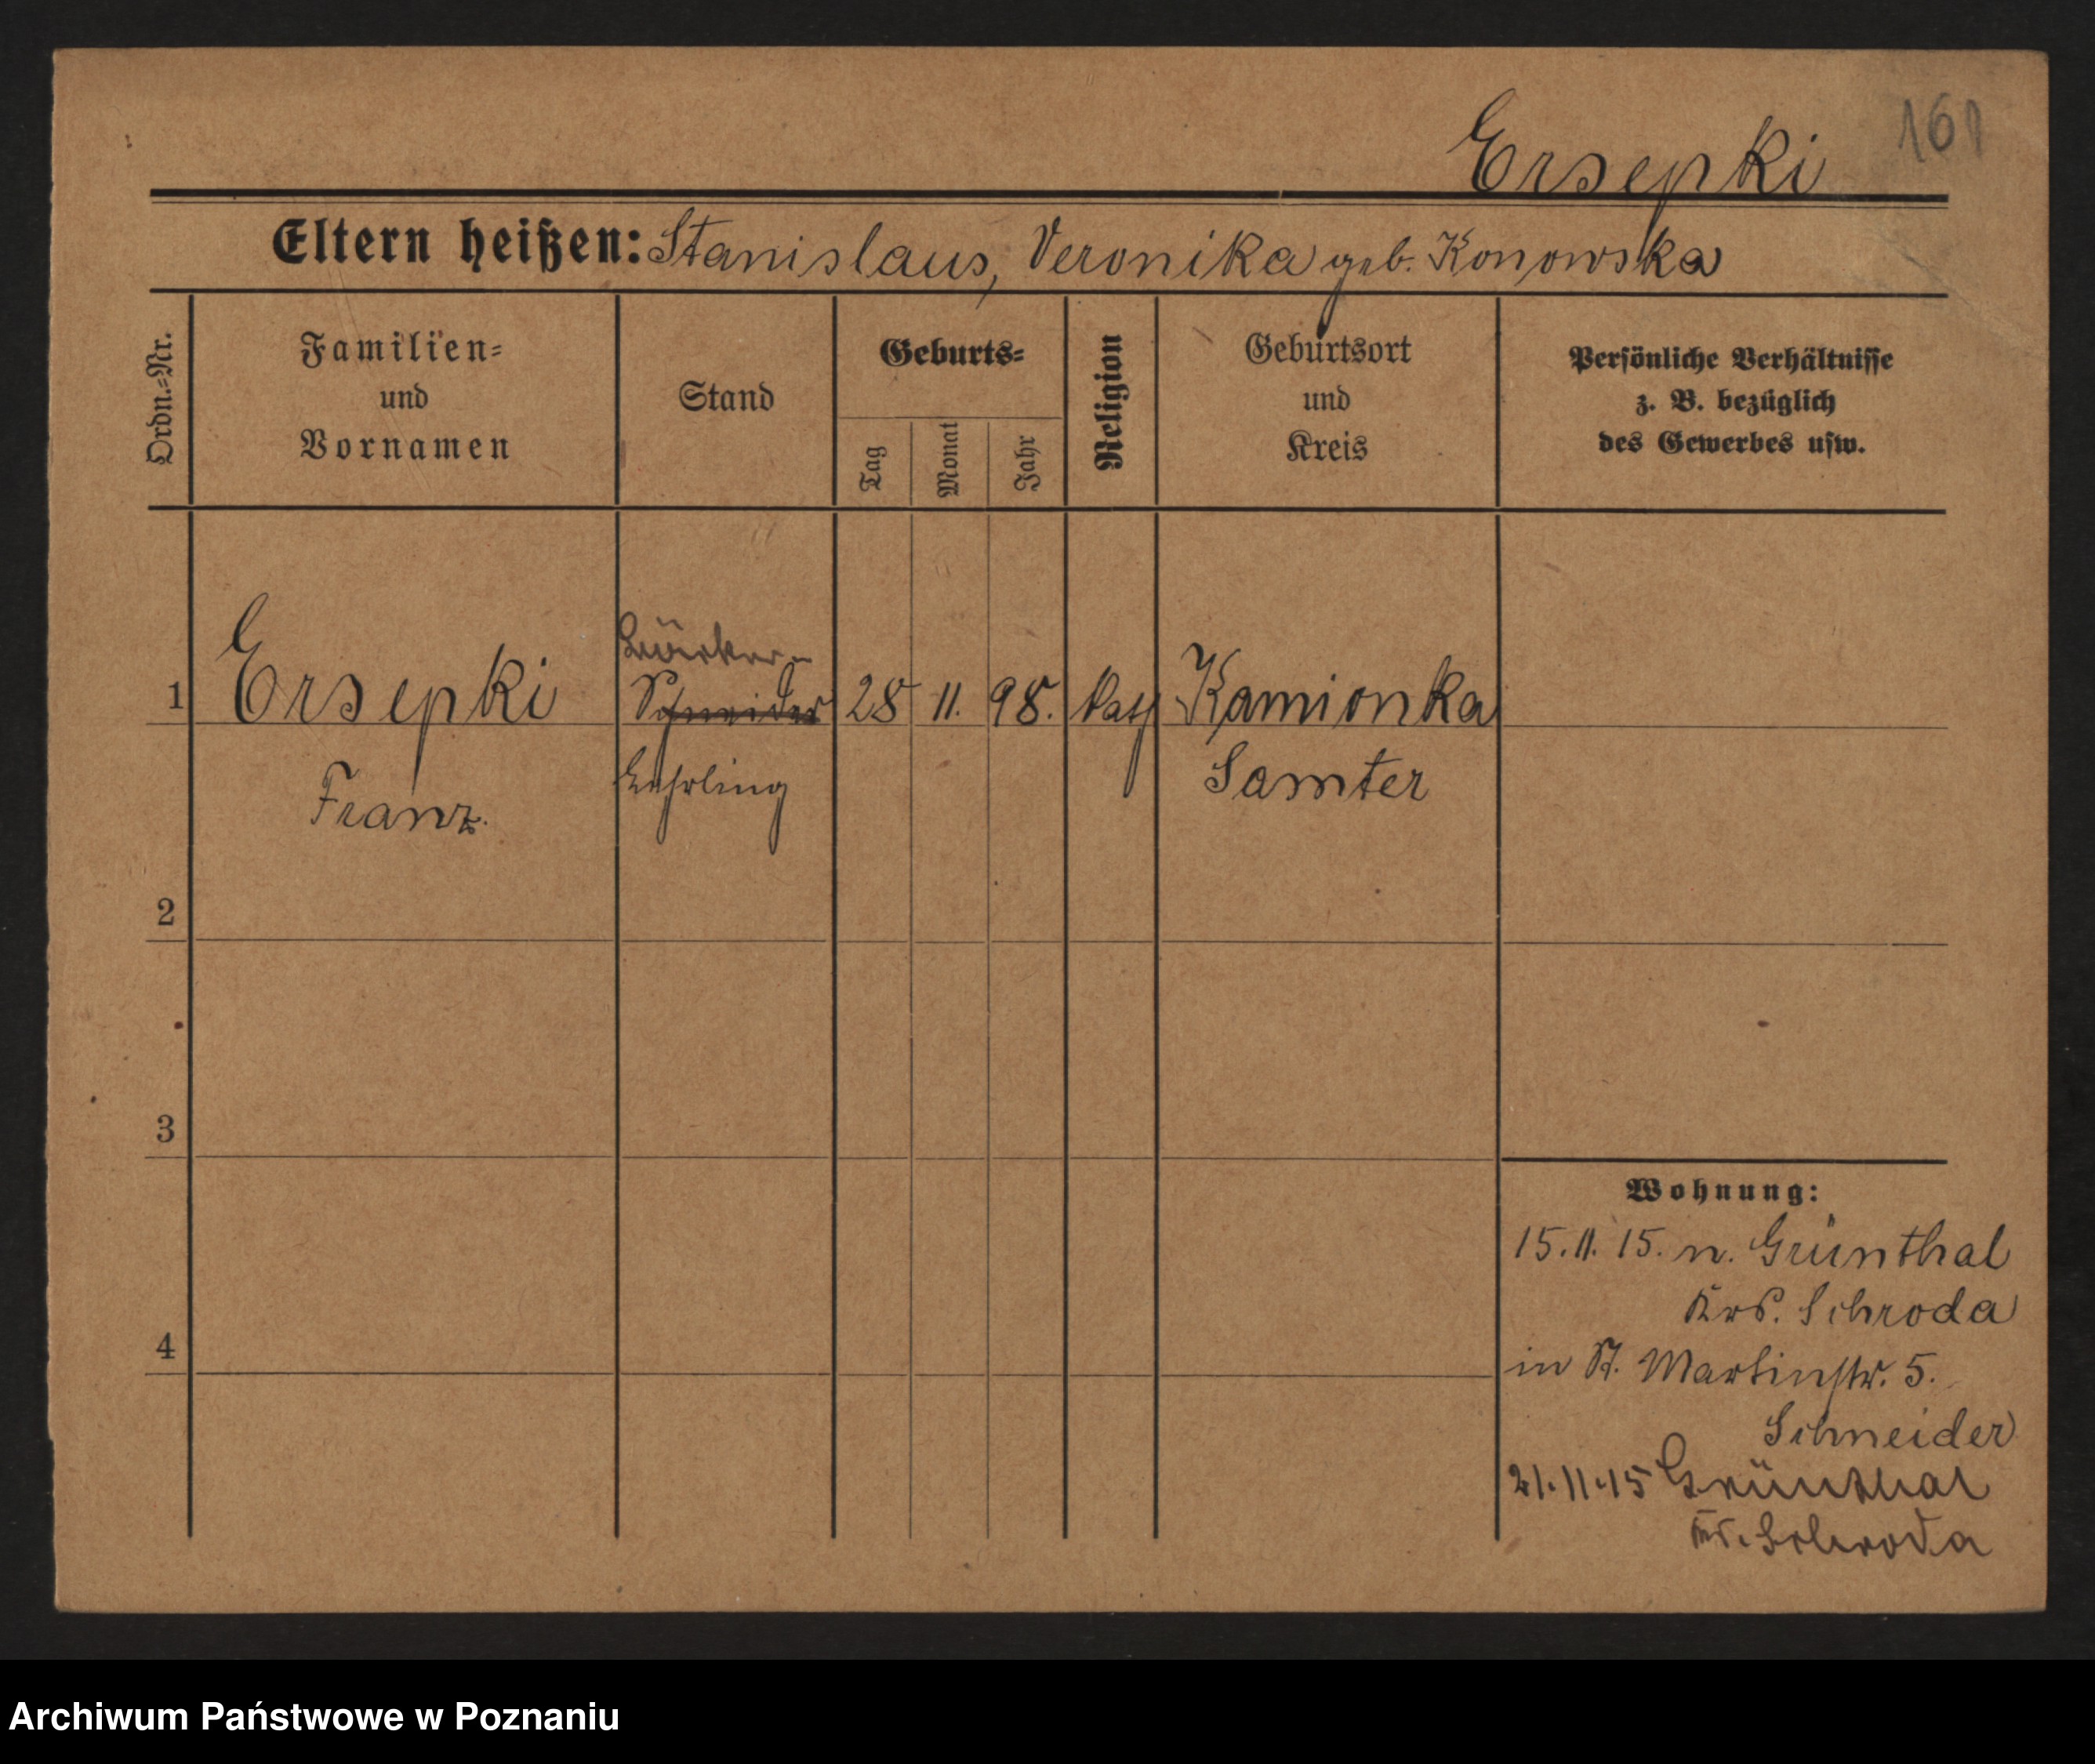 161
Ersepki
Eltern heißen: Stanislaus, Veronika geb. Konowska
Ordn.-Nr.
Familien-
und
Vornamen
Stand
Geburts-
Tag
Monat
Jahr
Religion
Geburtsort
und
Kreis
Persönliche Verhältnisse
z. B. bezüglich
des Gewerbes usw.
Bäcker-
1 Ersepki Schneider 28 11. 98. kath Kamionka
Franz. Lehrling Samter
2
3
4
Wohnung:
15.11.15. n. Grünthal
Krs. Schroda
in St. Martinstr. 5.
Schneider
21.11.15 Grünthal
Kr. Schroda
Archiwum Państwowe w Poznaniu